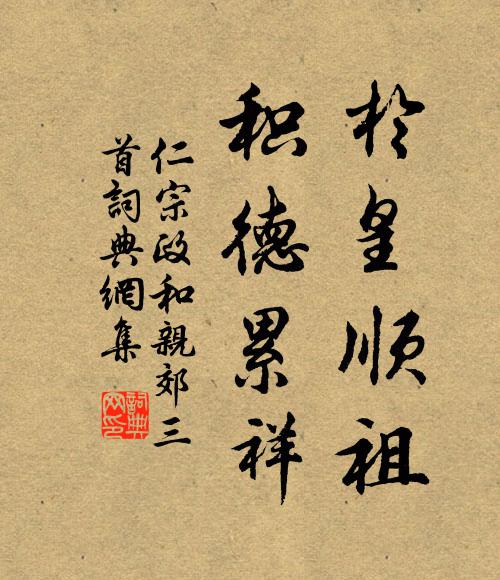 於皇顺祖
积德累祥
仁宗政和親郊三
首詞典網集
詞典
网印